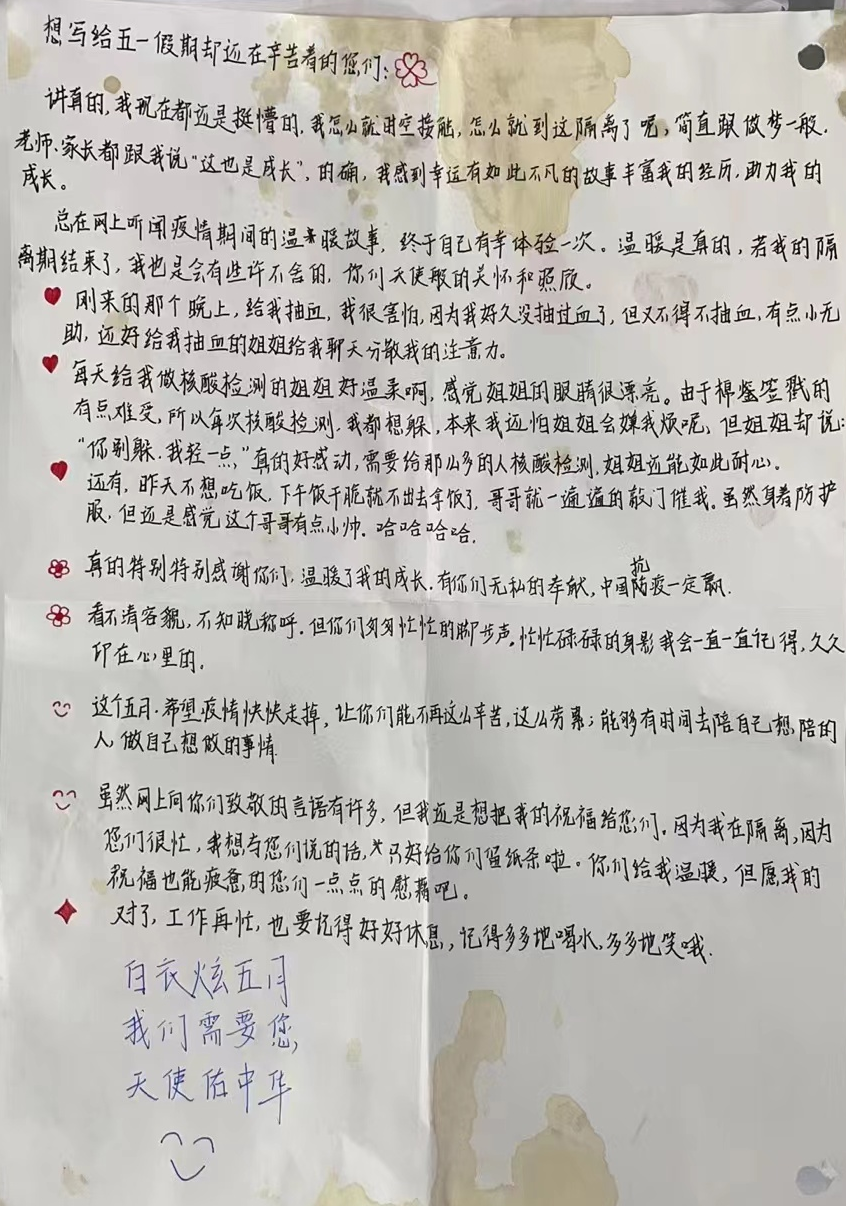 想写给五一假期却还在辛苦着的您们：
讲真的，我现在都还是挺懵的，我怎么就时空接触，怎么就到这隔离了呢，简直跟做梦一般，
老师、家长都跟我说“这也是成长”，的确，我感到幸运有如此不凡的故事丰富我的经历，助力我的
成长。
总在网上听闻疫情期间的温暖故事，终于自己有幸体验一次。温暖是真的，若我的隔
离期结束了，我也是会有些许不舍的，你们天使般的关怀和照顾。
刚来的那个晚上，给我抽血，我很害怕，因为我好久没抽过血了，但又不得不抽血，有点小无
助，还好给我抽血的姐姐给我聊天分散我的注意力。
每天给我做核酸检测的姐姐好温柔啊，感觉姐姐的眼睛很漂亮。由于棉签签戳的
有点难受，所以每次核酸检测，我都想躲，本来我还怕姐姐会嫌我烦呢，但姐姐却说：
“你别躲，我轻一点，”真的好感动，需要给那么多的人核酸检测，姐姐还能如此耐心。
还有，昨天不想吃饭，下午饭干脆就不出去拿饭了，哥哥就一遍遍的敲门催我。虽然身着防护
服，但还是感觉这个哥哥有点小帅，哈哈哈哈，
真的特别特别感谢你们，温暖了我的成长，有你们无私的奉献，中国抗疫一定赢.
看不清容貌，不知晓称呼，但你们匆匆忙忙的脚步声，忙忙碌碌的身影我会一直一直记得，久久
印在心里的，
这个五月，希望疫情快快走掉，让你们能不再这么辛苦，这么劳累；能够有时间去陪自己想陪的
人，做自己想做的事情
虽然网上向你们致敬的言语有许多，但我还是想把我的祝福给您们。因为我在隔离，因为
您们很忙，我想与您们说的话，只好给你们留纸条啦。你们给我温暖，但愿我的
祝福也能疲惫的您们一点点的慰藉吧。
对了，工作再忙，也要记得好好休息，记得多多地喝水，多多地笑哦.
白衣炫五月
我们需要您，
天使佑中华